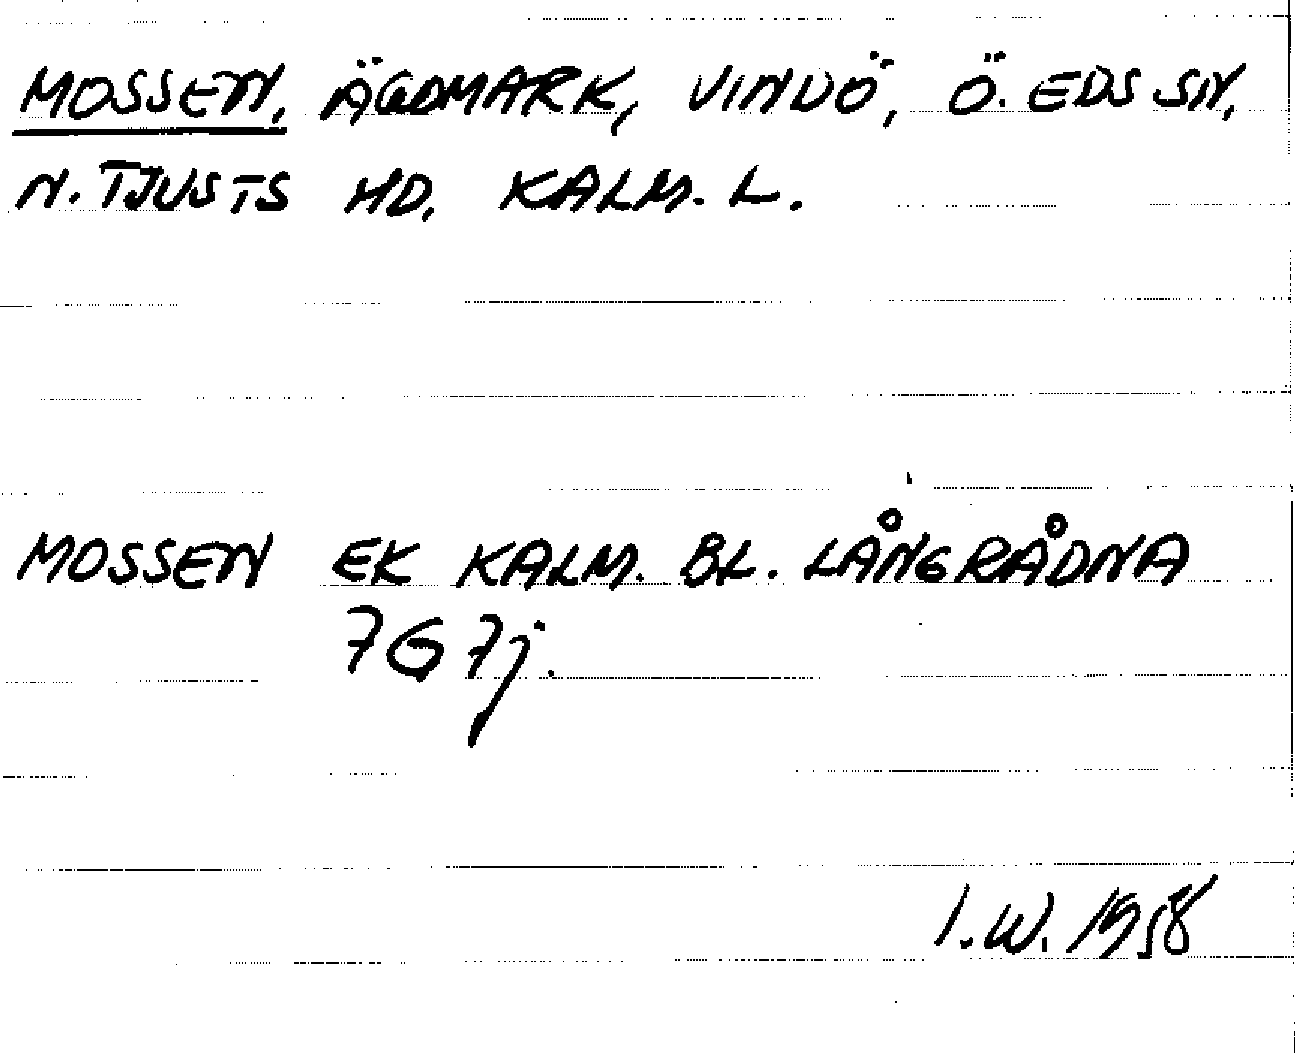 MOSSEN, ÄGOMARK, VINDÖ, Ö. EDS SN,
N. TJUSTS HD, KALM. L.
MOSSEN EK KALM. BL. LÅNGRÅDNA
7G 7j.
I.W. 1958